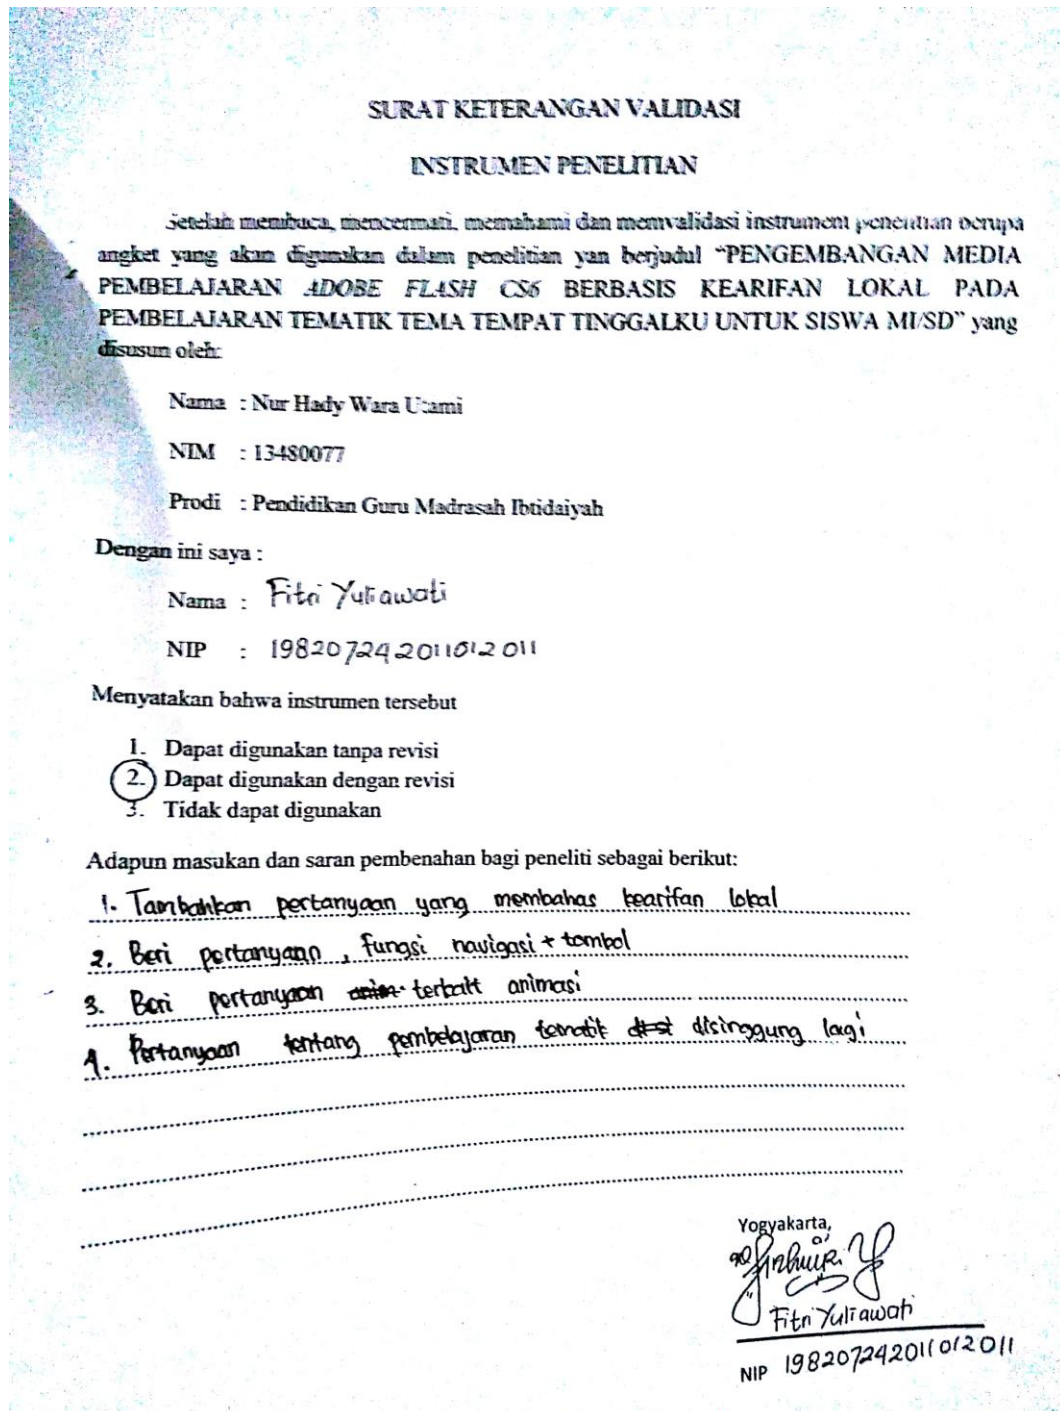 SURAT KETERANGAN VALIDASI
INSTRUMEN PENELITIAN
Setelah membaca, mencermati, memahami dan memvalidasi instrument penelitian berupa
angket yang akan digunakan dalam penelitian yan berjudul “PENGEMBANGAN MEDIA
PEMBELAJARAN ADOBE FLASH CS6 BERBASIS KEARIFAN LOKAL PADA
PEMBELAJARAN TEMATIK TEMA TEMPAT TINGGALKU UNTUK SISWA MI/SD” yang
disusun oleh:
Nama : Nur Hady Wara Utami
NIM : 13480077
Prodi : Pendidikan Guru Madrasah Ibtidaiyah
Dengan ini saya :
Nama : Fitri Yuliawati
NIP : 198207242011012011
Menyatakan bahwa instrumen tersebut
1. Dapat digunakan tanpa revisi
2. Dapat digunakan dengan revisi
3. Tidak dapat digunakan
Adapun masukan dan saran pembenahan bagi peneliti sebagai berikut:
1. Tambahkan pertanyaan yang membahas kearifan lokal
2. Beri pertanyaan, fungsi navigasi + tombol
3. Beri pertanyaan terkait animasi
4. Pertanyaan tentang pembelajaran tematik disinggung lagi
Yogyakarta,
Fitri Yuliawati
NIP 198207242011012011